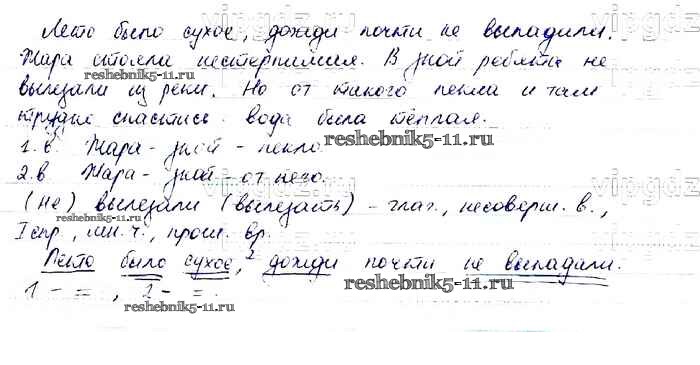 Лето было сухое, дожди почти не выпадали.
Жара стояла нестерпимая. В зной ребята не
вылезали из реки. Но от такого пекла и там
трудно спастись. вода была тёплая.
1. в. Жара - зной - пекло
2. в Жара - зной - от него.
(не) вылезали (вылезать) - глаг., несоверш. в.,
I спр., мн. ч., прош. вр.
Лето было сухое, 2 дожди почти не выпадали.
1 - =, 2 - =.
reshebnik5-11.ru
reshebnik5-11.ru
reshebnik5-11.ru
reshebnik5-11.ru
reshebnik5-11.ru
vipgdz
vipgdz
vipgdz